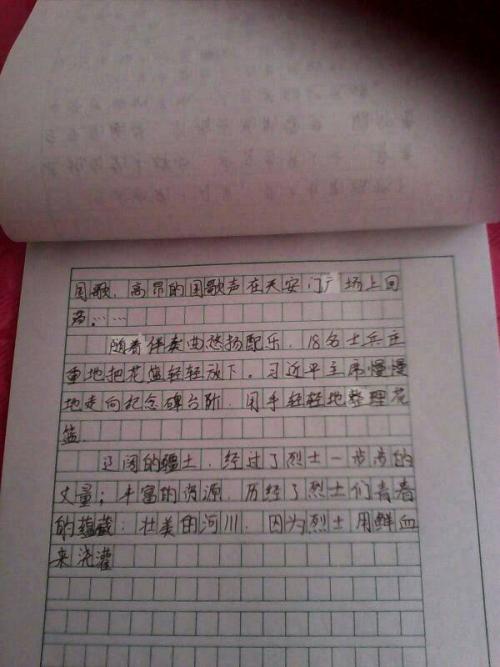 国歌，高昂的国歌声在天安门广场上回
荡……
随着伴奏曲悠扬配乐，18名士兵庄
重地把花篮轻轻放下。习近平主席慢慢
地走向纪念碑台阶，用手轻轻地整理花
篮。
辽阔的疆土，经过了烈士一步步的
丈量；丰富的资源，历经了烈士们青春
的蕴藏；壮美的河川，因为烈士用鲜血
来浇灌